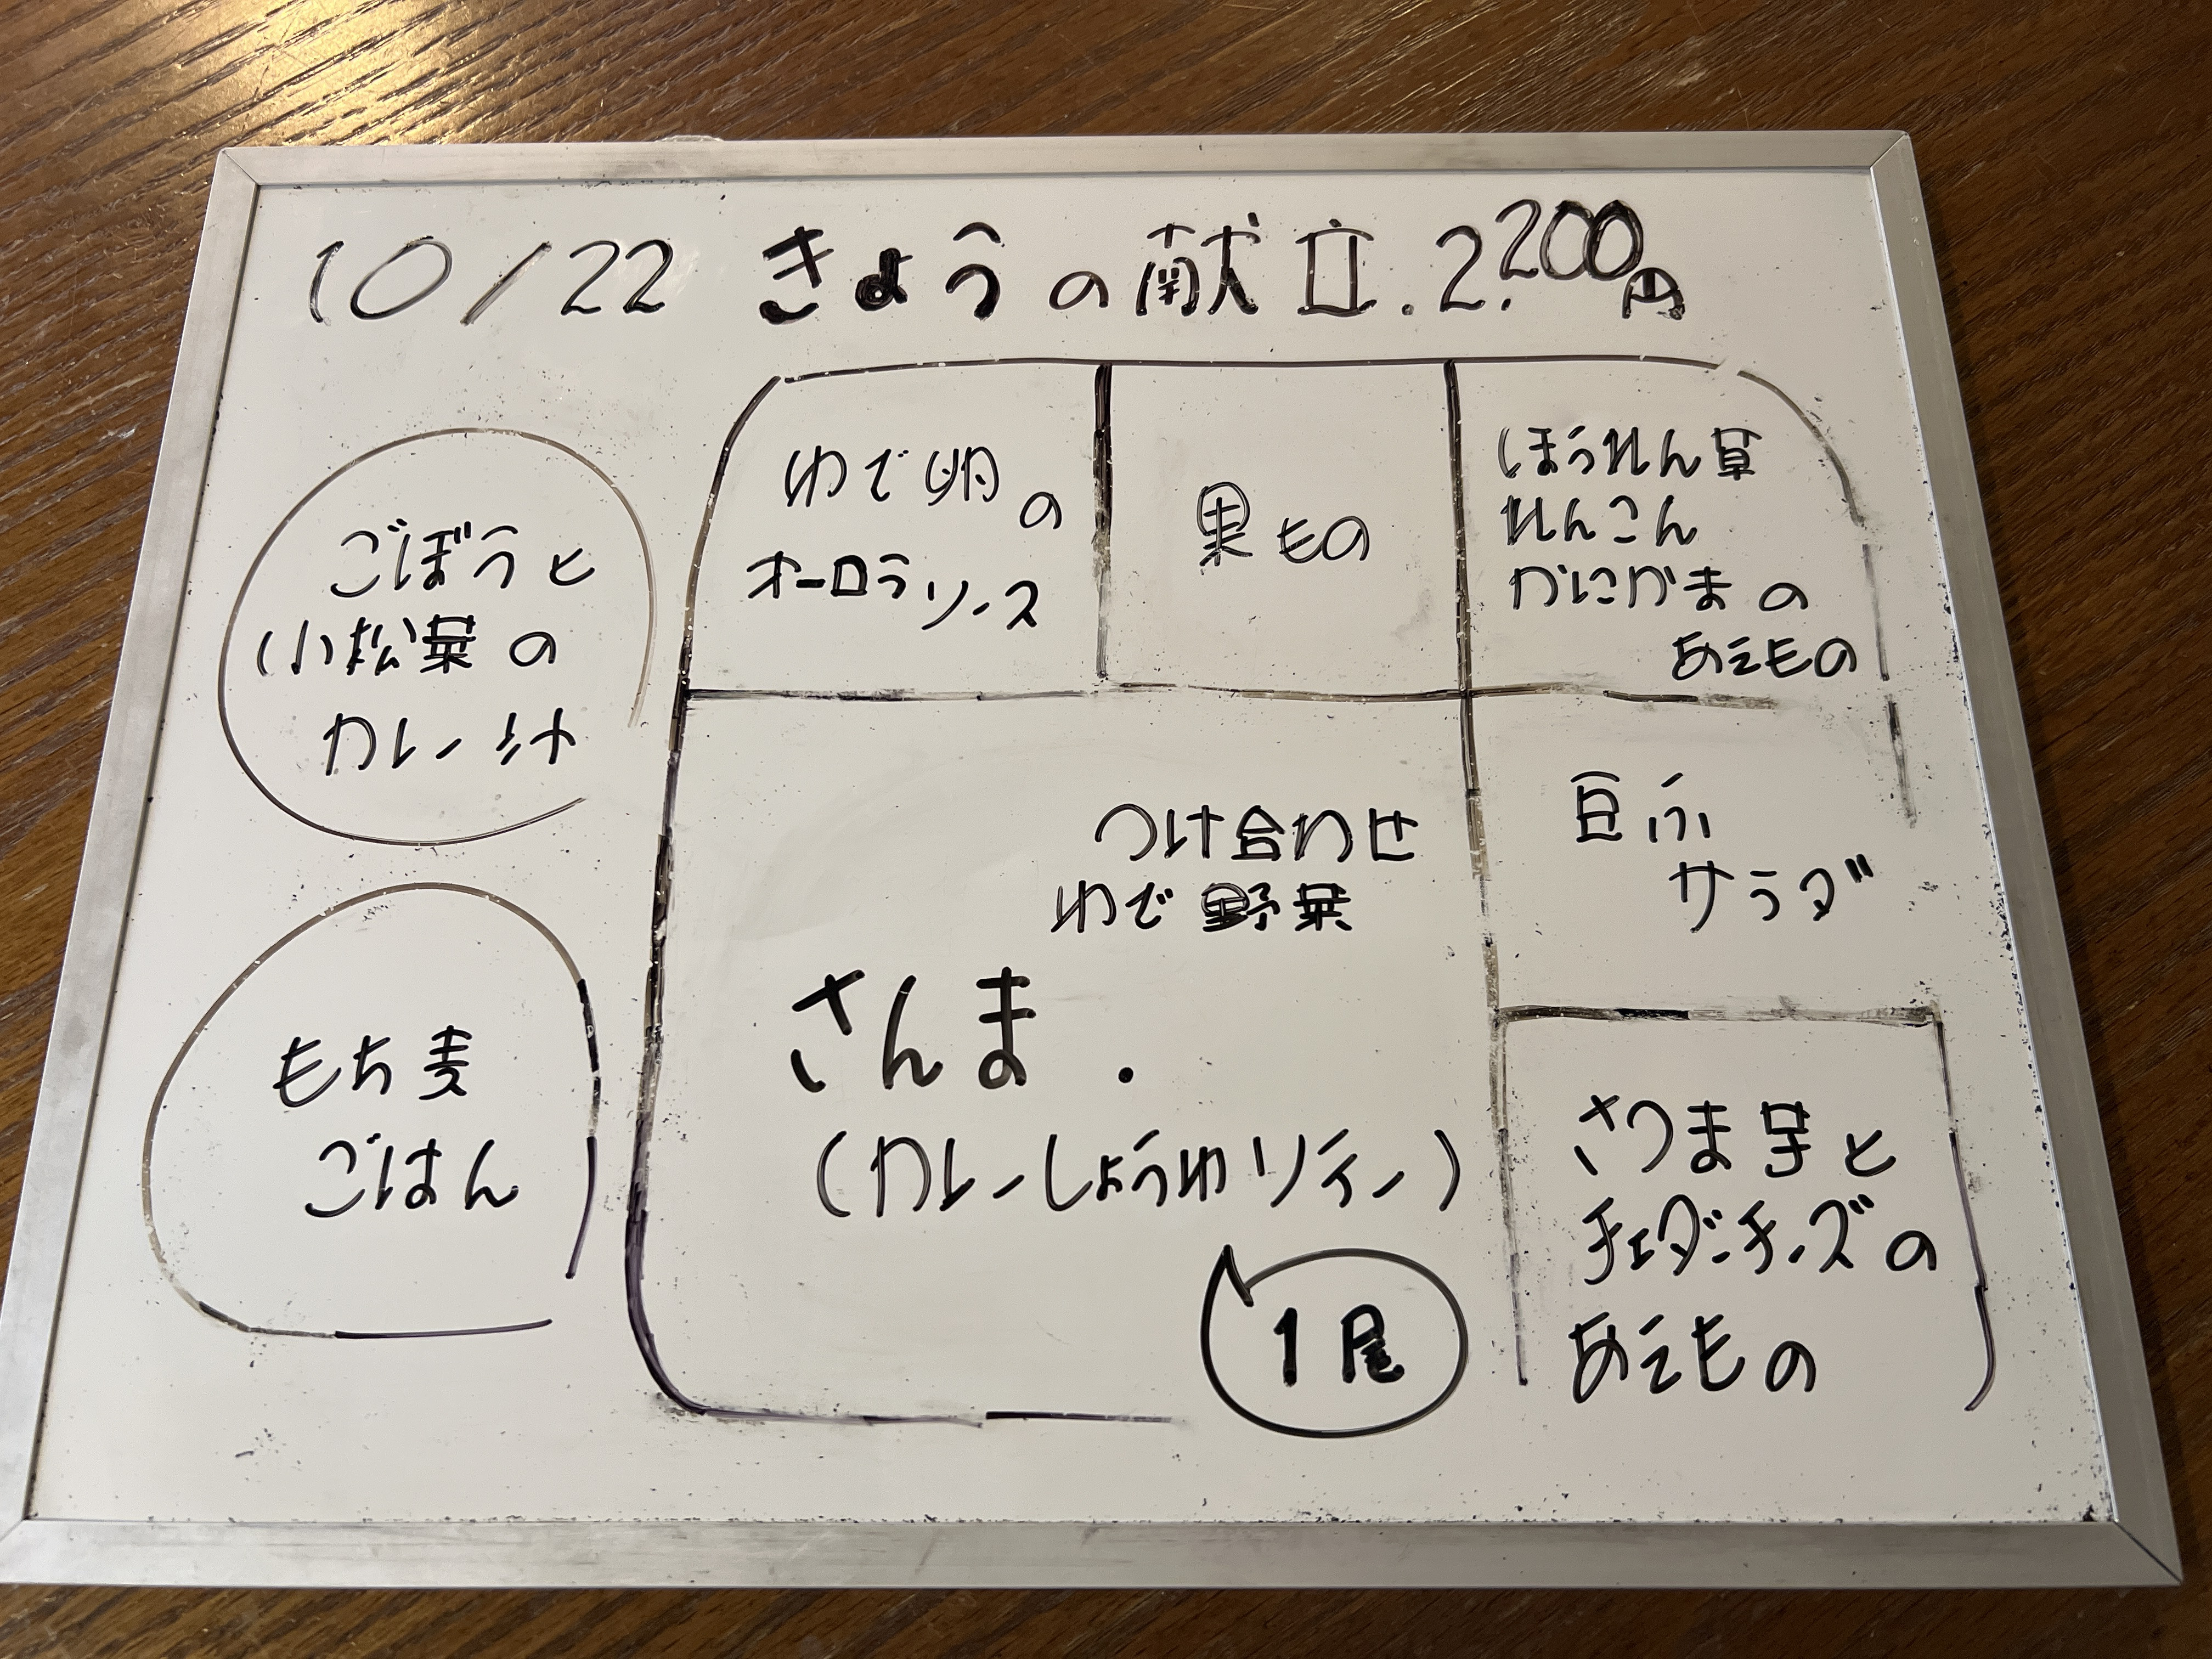 10/22 きょうの献立. 2.200円
ごぼうと
小松菜の
カレー汁
もち麦
ごはん
ゆで卵の
オーロラソース
果もの
ほうれん草
れんこん
かにかまの
あえもの
つけ合わせ
ゆで野菜
さんま.
(カレーしょうゆソテー)
1尾
豆ふ
サラダ
さつま芋と
チェダーチーズの
あえもの